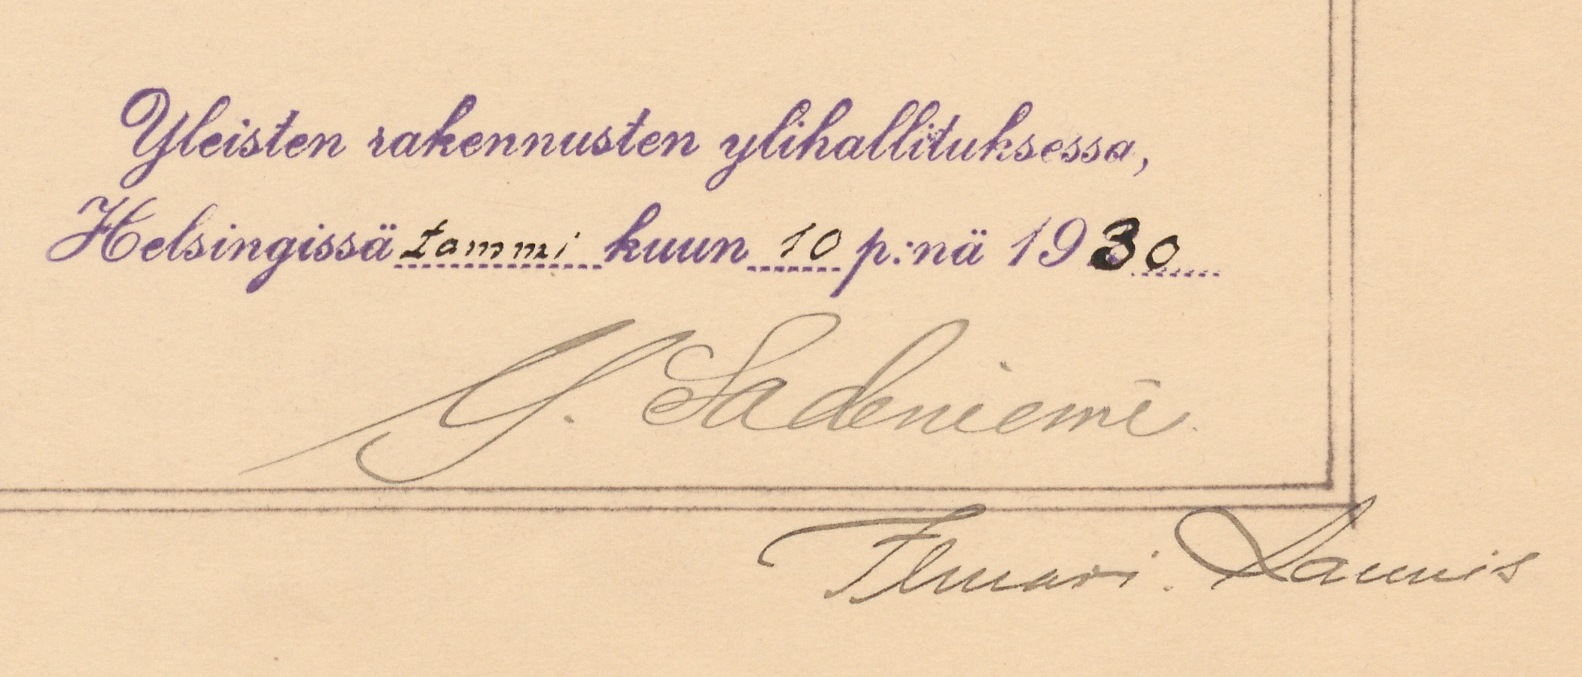 Yleisten rakennusten ylihallituksessa,
Helsingissä tammi kuun 10 p:nä 1930
Y. Sadeniemi.
Ilmari Launis